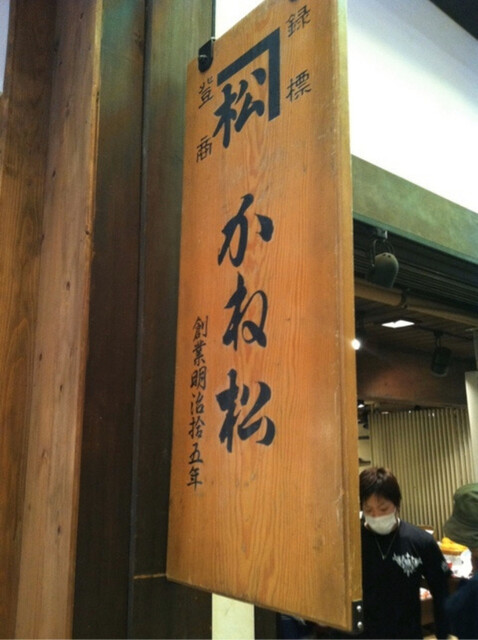 登録商標
松
かね松
創業明治拾五年